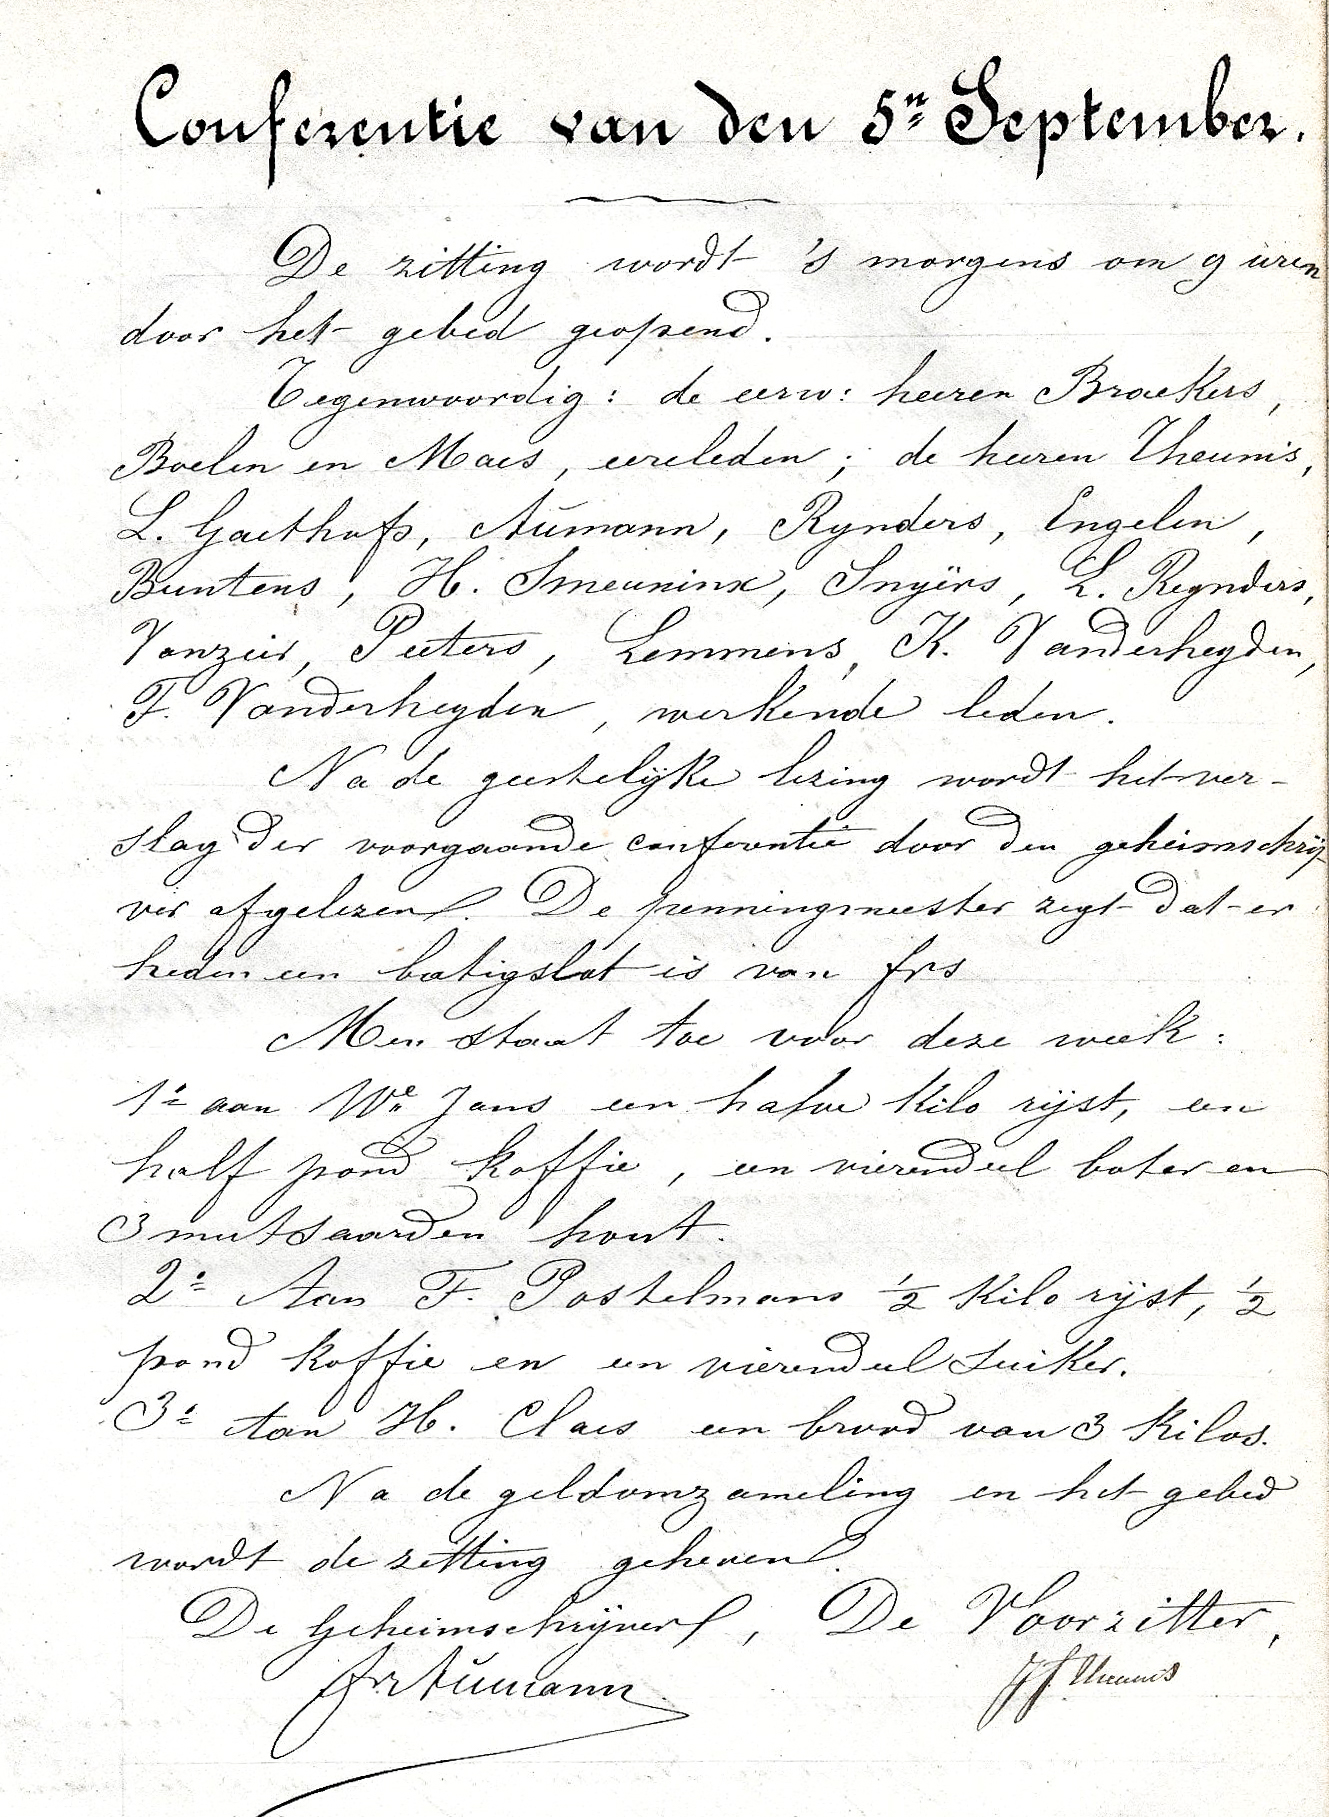 Conferentie van den 5n September.
De zitting wordt 's morgens om 9 uren
door het gebed geopend.
Tegenwoordig: de eerw: heeren Broekers,
Boelen en Maes, eereleden; de heeren Theunis,
L. Gaethofs, Aumann, Rynders, Engelen,
Buntens, H. Smeuninx, Snyërs, L. Reynders,
Vanzeir, Peeters, Lemmens, K. Vanderheyden,
F. Vanderheyden, werkende leden.
Na de geestelijke lezing wordt het ver-
slag der voorgaande conferentie door den geheimschrij-
ver afgelezen. De penningmeester zegt dat er
heden een batig slot is van frs
Men staat toe voor deze week:
1° aan We Jans een halve kilo rijst, een
half pond koffie, een vierendeel boter en
3 mutsaarden hout.
2° Aan F. Postelmans ½ kilo rijst, ½
pond koffie en een vierendeel suiker.
3° Aan H. Claes een brood van 3 kilos.
Na de geldomzameling en het gebed
wordt de zitting geheven.
De Geheimschrijver, De Voorzitter,
Fr Aumann J J Theunis